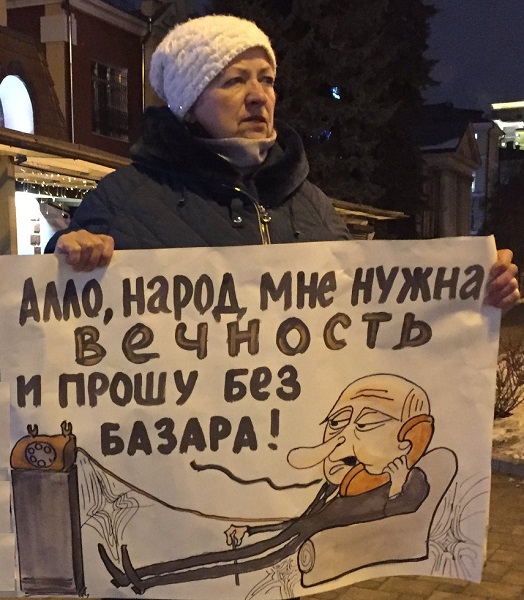 АЛЛО, НАРОД, МНЕ НУЖНА
ВЕЧНОСТЬ
И ПРОШУ БЕЗ
БАЗАРА!